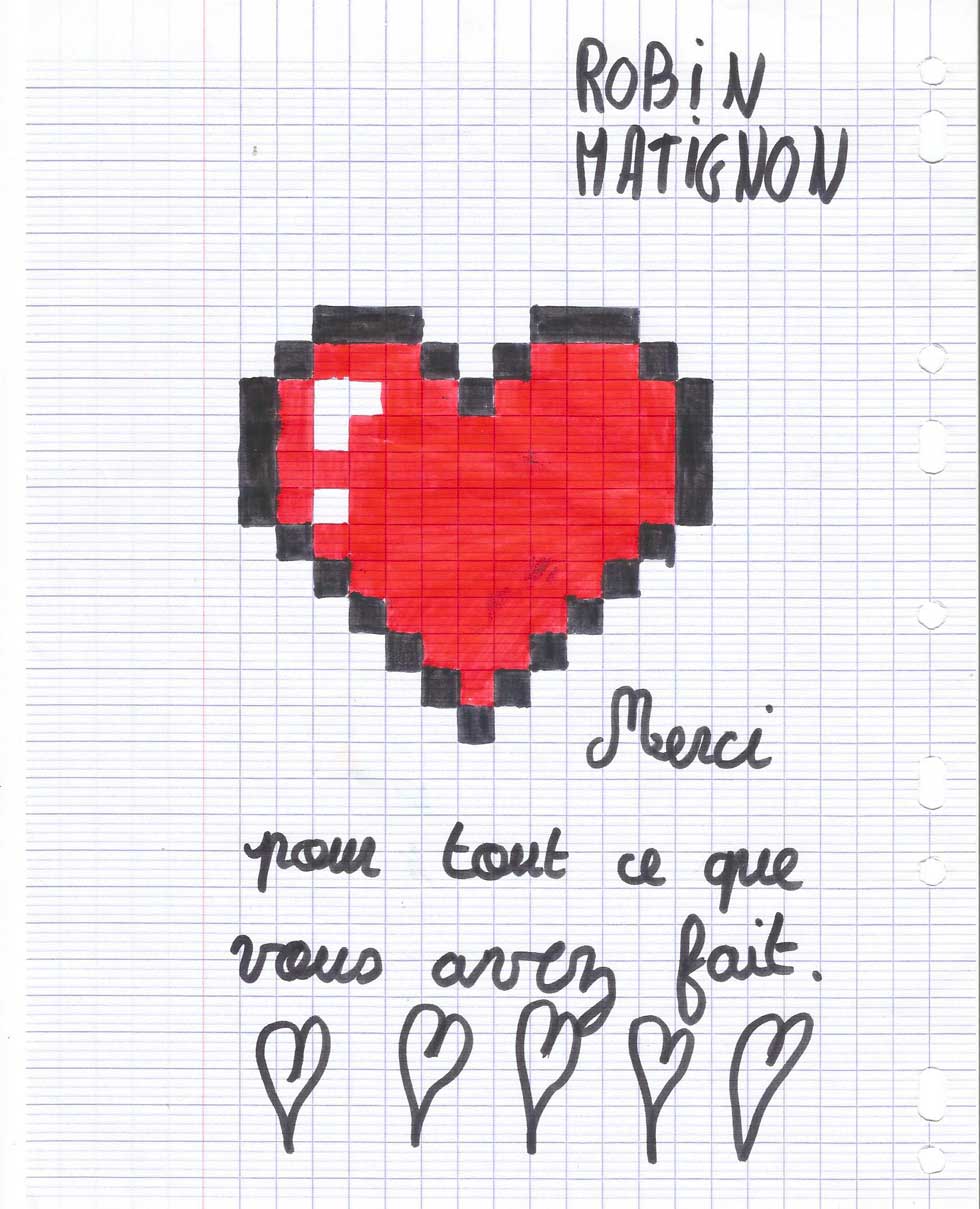 ROBiN
MATiGNON
Merci
pour tout ce que
vous avez fait.